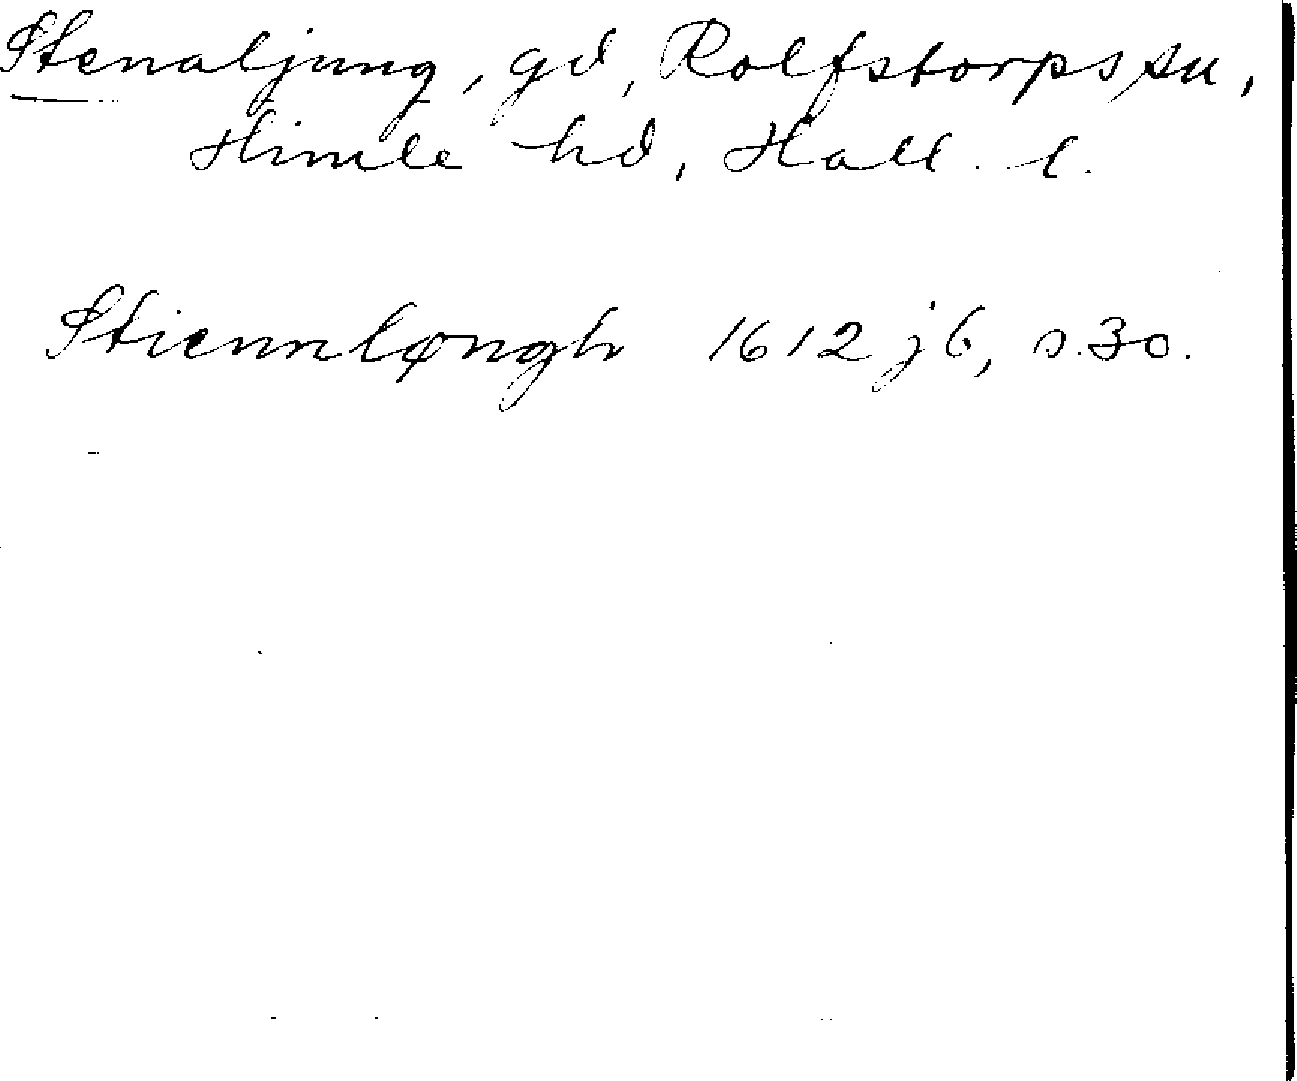 Stenaljung, gd, Rolfstorps sn,
Himle hd, Hall. l.
Stiennløngh 1612 jb, s. 30.